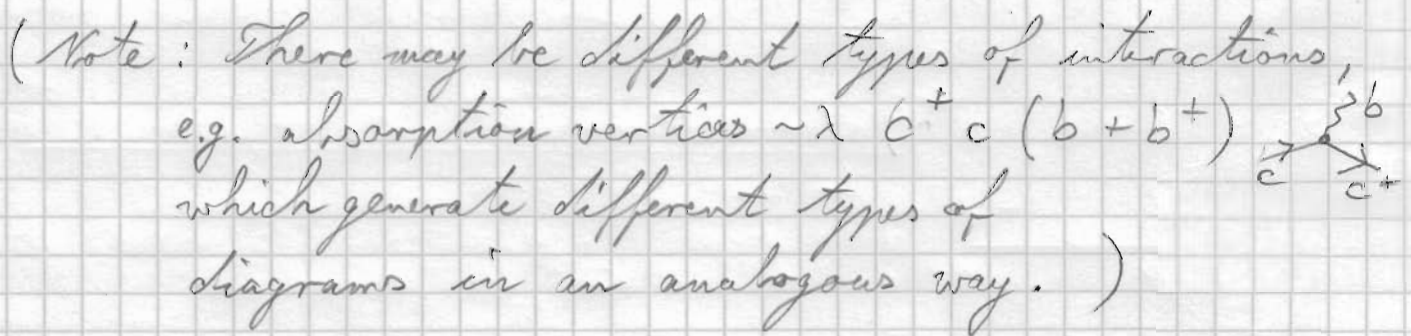 (Note: There may be different types of interactions,
e.g. absorption vertices ~ λ c⁺ c (b + b⁺) b c c⁺
which generate different types of
diagrams in an analogous way. )